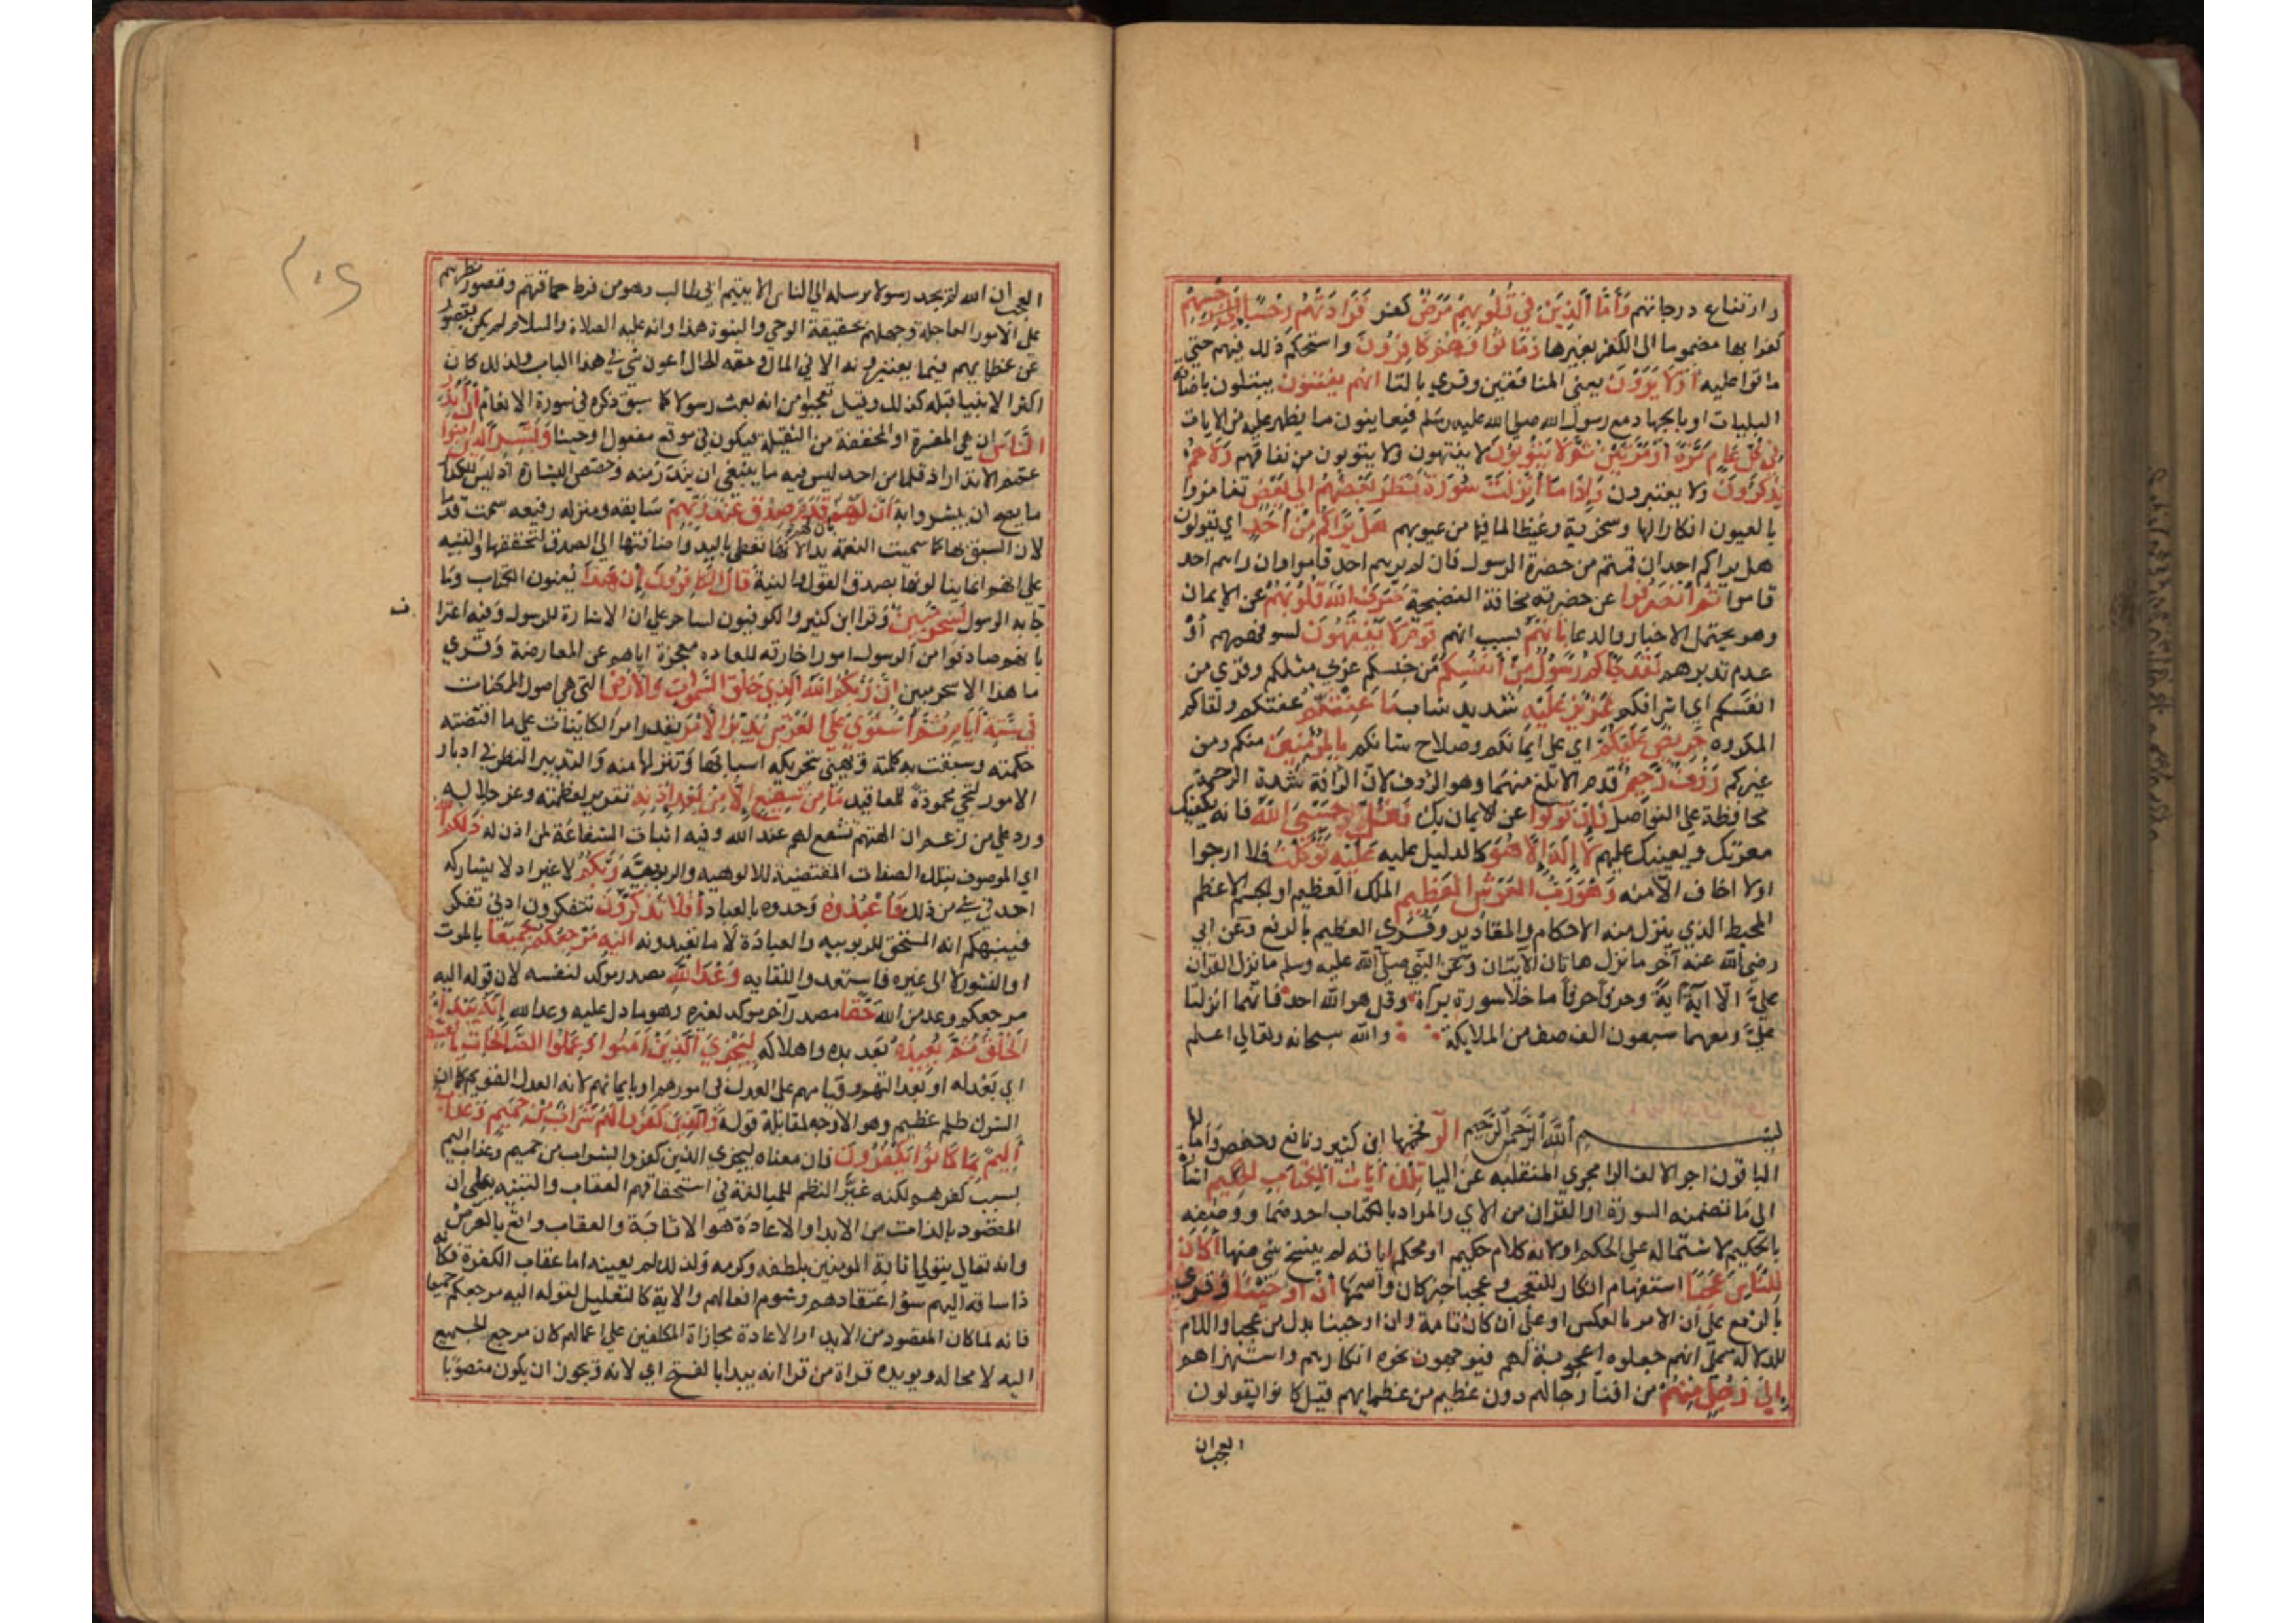 وارتفاع درجاتهم وَأَمَّا الَّذِينَ فِي قُلُوبِهِمْ مَرَضٌ كفر فَزَادَتْهُمْ رِجْسًا إِلَى رِجْسِهِمْ
كفرا بها مضموما الى الكفر بغيرها وَمَاتُوا وَهُمْ كَافِرُونَ واستحكم ذلك فيهم حتي
ماتوا عليه أَوَلَا يَرَوْنَ يعني المنافقين وقري بالتا أنهم يفتنون يبتلون باصناف
البليات او بالجهاد مع رسول الله صلي الله عليه وسلم فيعاينون ما يظهر عليه من الايات
فِي كُلِّ عَامٍ مَرَّةً أَوْ مَرَّتَيْنِ ثُمَّ لَا يَتُوبُونَ لا ينتهون ولا يتوبون من نفاقهم وَلَا هُمْ
يَذَّكَّرُونَ ولا يعتبرون وَإِذَا مَا أُنْزِلَتْ سُورَةٌ نَظَرَ بَعْضُهُمْ إِلَى بَعْضٍ تغامزوا
بالعيون انكارا لها وسخرية وغيظا لما فيها من عيوبهم هَلْ يَرَاكُمْ مِنْ أَحَدٍ اي يقولون
هل يراكم احد ان قمتم من حضرة الرسول فان لم يرهم احد قاموا وان راهم احد
قاموا ثُمَّ انْصَرَفُوا عن حضرته مخافة الفضيحة صَرَفَ اللَّهُ قُلُوبَهُمْ عن الايمان
وهو يحتمل الاخبار والدعا بِأَنَّهُمْ بسبب انهم قَوْمٌ لَا يَفْقَهُونَ لسو فهمهم أوْ
عدم تدبرهم لَقَدْ جَاءَكُمْ رَسُولٌ مِنْ أَنْفُسِكُمْ من جنسكم عربي مثلكم وقري من
انفَسكم اي اشرافكم عَزِيزٌ عَلَيْهِ شديد شاب مَا عَنِتُّمْ عنتكم ولقاكم
المكروه حَرِيصٌ عَلَيْكُمْ اي على ايمانكم وصلاح شانكم بِالْمُؤْمِنِينَ منكم ومن
غيركم رَؤُفٌ رَحِيمٌ قدم الابلغ منهما وهو الرؤف لان الرافة شدة الرحمة
محافظة علي الفواصل فَإِنْ تَوَلَّوْا عن الايمان بك فَقُلْ حَسْبِيَ اللَّهُ فانه يكفيك
معرتك ويعينك عليهم لَا إِلَهَ إِلَّا هُوَ كالدليل عليه عَلَيْهِ تَوَكَّلْتُ فلا ارجوا
اولا اخاف الامنه وَهُوَ رَبُّ الْعَرْشِ الْعَظِيمِ الملك العظيم او الجسم الاعظم
المحيط الذي ينزل منه الاحكام والمقادير وقرى العظيم بالرفع وعن ابي
رضي الله عنه آخر ما نزل هاتان الآيتان وعن النبي صلى الله عليه وسلم ما نزل القران
عليَّ الا ايةً ايةً وحرفاً حرفاً ما خلا سورة براة وقل هو الله احد فانهما انزلتا
عليَّ ومعهما سبعون الف صف من الملايكة والله سبحانه وتعالي اعلم
بِسْمِ اللَّهِ الرَّحْمَنِ الرَّحِيمِ الر فخمها ابن كثير ونافع وحفص وأمالها
الباقون اجرا لالف الرا مجري المنقلبه عن اليا تِلْكَ آيَاتُ الْكِتَابِ الْحَكِيمِ اشارة
الي ما تضمنه السورة او القران من الاي والمراد بالكتاب احدهما ووصفه
بالحكيم لاشتماله علي الحكم اولانه كلام حكيم او محكم اياته لم ينسخ شي منها أَكَانَ
لِلنَّاسِ عَجَبًا استفهام انكار للتعجب وعجبا خبر كان واسمها أَنْ أَوْحَيْنَا وقري
بالرفع علي ان الامر بالعكس او على أن كان تامة وان اوحينا بدل من عجبا واللام
للدلالة علي انهم جعلوه اعجوبة لهم يتوجهون نحوه انكارهم واستهزاهم
إِلَى رَجُلٍ مِنْهُمْ من افناء رجالهم دون عظيم من عظمايهم قيل كانوا يقولون
العجب ان
العجب ان الله لم يجد رسولا يرسله الي الناس الا يتيم ابي طالب وهو من فرط حماقتهم وقصور نظرهم
على الامور العاجلة وجهلهم بحقيقة الوحي والنبوة هذا وانه عليه الصلاة والسلام لم يكن يقصر
عن عظمايهم فيما يعتبرونه الا في المال وخفة الحال اعون شي في هذا الباب ولذلك كان
اكثر الانبيا قبله كذلك وقيل تعجبوا من انه بعث رسولا كما سبق ذكره في سورة الانعام أَنْ أَنْذِرِ
النَّاسَ ان هي المفسرة او المخففة من الثقيلة فيكون في موقع مفعول اوحينا وَبَشِّرِ الَّذِينَ آمَنُوا
عمم الانذار اذ قلما من احد ليس فيه ما ينبغي ان ينذر منه وخصص البشارة اذ ليس للكفار
ما يصح ان يبشروا به أَنَّ لَهُمْ قَدَمَ صِدْقٍ عِنْدَ رَبِّهِمْ سابقه ومنزله رفيعه سميت قدما
لان السبق بها كما سميت النعمة يدا لانها تعطى باليد واضافتها الى الصدق لتحققها والتنبيه
علي انهم انما ينالونها بصدق القول والنية قَالَ الْكَافِرُونَ إِنَّ هَذَا يعنون الكتاب وما
جا به الرسول لَسِحْرٌ مُبِينٌ وقرا ابن كثير والكوفيون لساحر علي ان الاشارة للرسول وفيه اعترا
ف
بانهم صادفوا من الرسول امورا خارقه للعاده معجزة اياهم عن المعارضة وقري
ما هذا الا سحر مبين إِنَّ رَبَّكُمُ اللَّهُ الَّذِي خَلَقَ السَّمَوَاتِ وَالْأَرْضَ التي هي اصول الممكنات
فِي سِتَّةِ أَيَّامٍ ثُمَّ اسْتَوَى عَلَى الْعَرْشِ يُدَبِّرُ الْأَمْرَ يقدر امر الكاينات علي ما اقتضته
حكمته وسبقت به كلمته ويهيئ بتحريكه اسبابها وتنزلها منه والتدبير النظر في ادبار
الامور لتجي محمودة العاقبه مَا مِنْ شَفِيعٍ إِلَّا مِنْ بَعْدِ إِذْنِهِ تقرير لعظمته وعز جلاله
ورد علي من زعم ان الهتهم تشفع لهم عند الله وفيه اثبات الشفاعة لمن اذن له ذَلِكُمُ اللَّهُ
اي الموصوف بتلك الصفات المقتضية للالوهيه والربوبيَّه رَبُّكُمْ لا غير اذ لا يشاركه
احد في شي من ذلك فَاعْبُدُوهُ وحدوه بالعباده أَفَلَا تَذَكَّرُونَ تتفكرون ادني تفكر
فينبهكم انه المستحق للربوبيه والعبادة لا ما تعبدونه إِلَيْهِ مَرْجِعُكُمْ جَمِيعًا بالموت
او النشور لا الى غيره فاستعدوا للقايه وَعْدَ اللَّهِ مصدر موكد لنفسه لان قوله اليه
مرجعكم وعد من الله حَقًّا مصدر آخر موكد لغيره وهو ما دل عليه وعد الله إِنَّهُ يَبْدَأُ
الْخَلْقَ ثُمَّ يُعِيدُهُ بعد بدءه واهلاكه لِيَجْزِيَ الَّذِينَ آمَنُوا وَعَمِلُوا الصَّالِحَاتِ بِالْقِسْطِ
اي بعدله او بعدالتهم وقيامهم على العدل في امورهم او بايمانهم لانه العدل القويم كما ان
الشرك ظلم عظيم وهو الاوجه لمقابلة قوله وَالَّذِينَ كَفَرُوا لَهُمْ شَرَابٌ مِنْ حَمِيمٍ وَعَذَابٌ
أَلِيمٌ بِمَا كَانُوا يَكْفُرُونَ فان معناه ليجزي الذين كفروا بشراب من حميم وعذاب اليم
بسبب كفرهم لكنه غيَّر النظم للمبالغة في استحقاقهم العقاب والتنبيه علي ان
المقصود بالذات من الابدا والاعادة هو الاثابة والعقاب واقع بالعرض
وانه تعالي يتولي اثابة المومنين بلطفه وكرمه ولذلك لم يعينه اما عقاب الكفرة فكانه
دا ساقه اليهم سؤ اعتقادهم وشوم افعالهم والاية كالتعليل لقوله اليه مرجعكم جميعا
فانه لما كان المقصود من الابدا والاعادة مجازاة المكلفين علي اعمالهم كان مرجع الجميع
اليه لا محاله ويويده قراة من قرا انه يبدا بالفتح اي لانه ويجوز ان يكون منصوبا